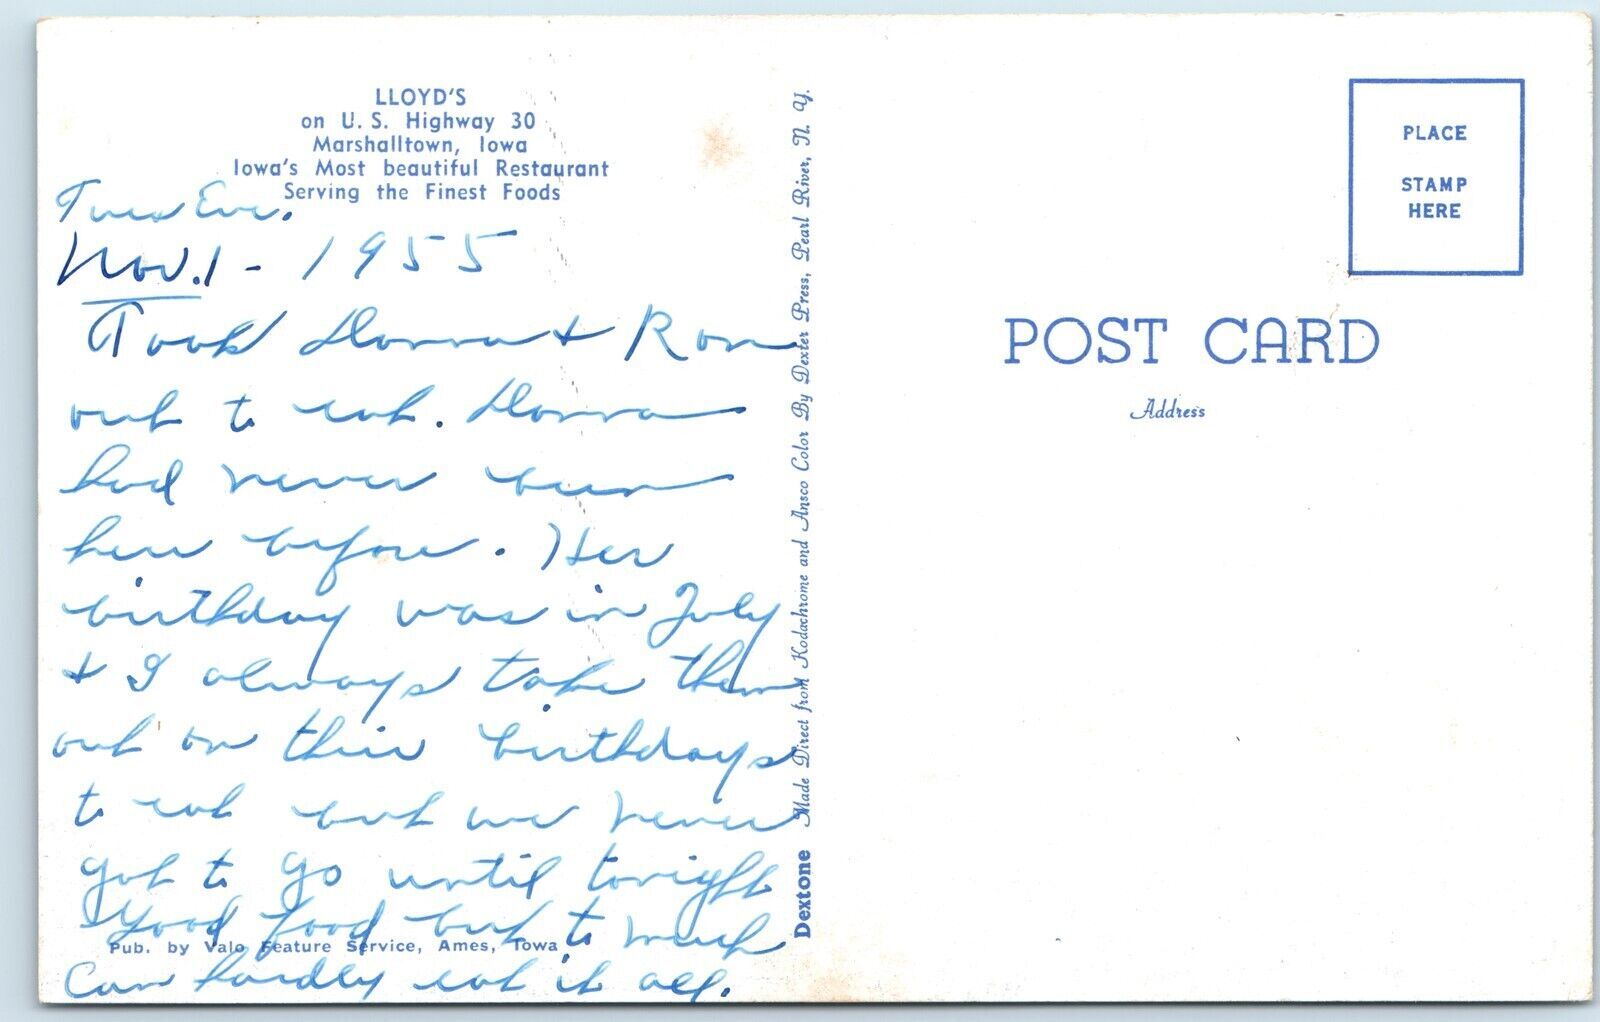 LLOYD'S
on U. S. Highway 30
Marshalltown, Iowa
Iowa's Most beautiful Restaurant
Serving the Finest Foods
Tues Eve.
Nov. 1 - 1955
Took Donna + Ron
out to eat. Donna
had never been
here before. Her
birthday was in July
+ I always take them
out on their birthdays
to eat but we never
got to go until tonight
Good food but to much
Can hardly eat it all.
Pub. by Valo Feature Service, Ames, Iowa
Dextone Made Direct from Kodachrome and Ansco Color By Dexter Press, Pearl River, N. Y.
PLACE
STAMP
HERE
POST CARD
Address